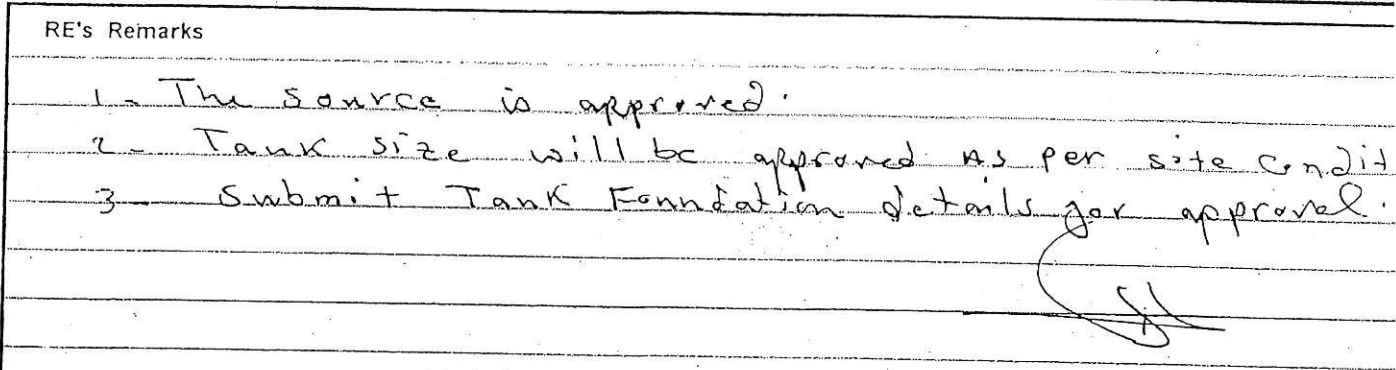 RE's Remarks
1- The source is approved.
2- Tank size will be approved As per site Condit
3- Submit Tank Foundation details for approval.